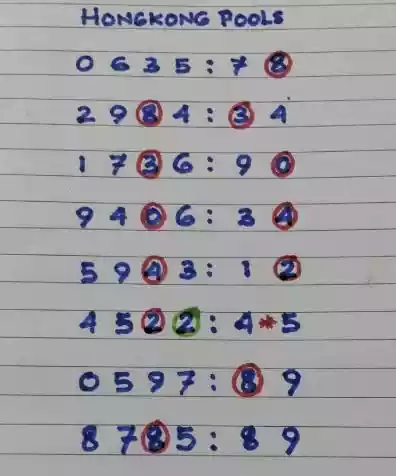 HONGKONG POOLS
0 6 3 5 : 7 8
2 9 8 4 : 3 4
1 7 3 6 : 9 0
9 4 0 6 : 3 4
5 9 4 3 : 1 2
4 5 2 2 : 4 * 5
0 5 9 7 : 8 9
8 7 8 5 : 8 9